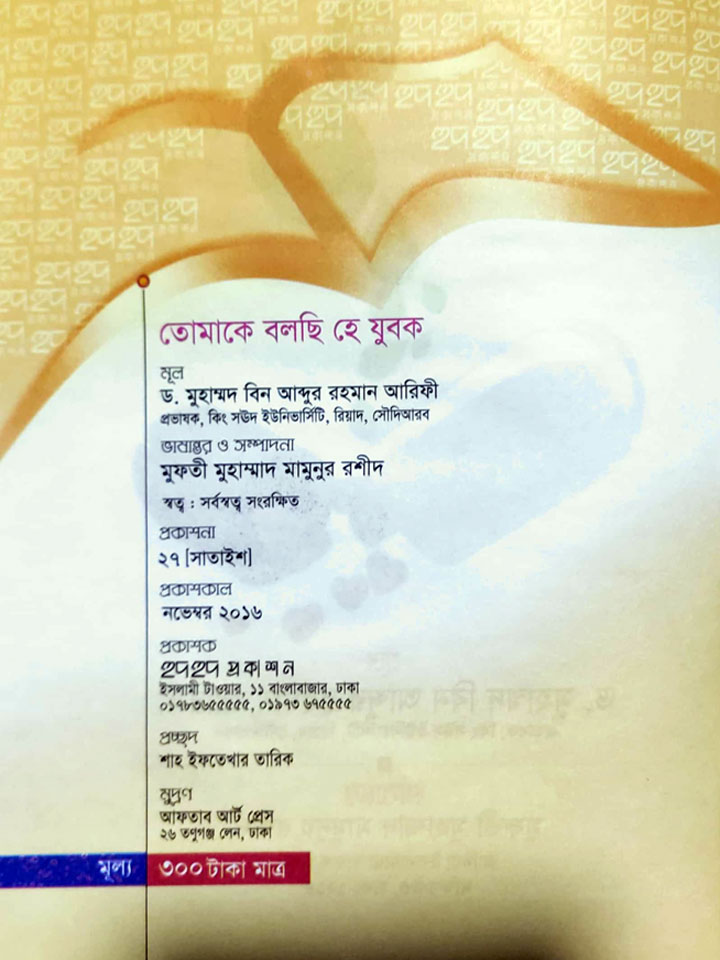 তোমাকে বলছি হে যুবক
মূল
ড. মুহাম্মদ বিন আব্দুর রহমান আরিফী
প্রভাষক, কিং সঊদ ইউনিভার্সিটি, রিয়াদ, সৌদিআরব
ভাষান্তর ও সম্পাদনা
মুফতী মুহাম্মাদ মামুনুর রশীদ
স্বত্ব : সর্বস্বত্ব সংরক্ষিত
প্রকাশনা
২৭ [সাতাইশ]
প্রকাশকাল
নভেম্বর ২০১৬
প্রকাশক
হুদহুদ প্রকাশন
ইসলামী টাওয়ার, ১১ বাংলাবাজার, ঢাকা
০১৭৮৩৬৫৫৫৫৫, ০১৯৭৩ ৬৭৫৫৫৫
প্রচ্ছদ
শাহ ইফতেখার তারিক
মুদ্রণ
আফতাব আর্ট প্রেস
২৬ তণুগঞ্জ লেন, ঢাকা
মূল্য ৩০০ টাকা মাত্র